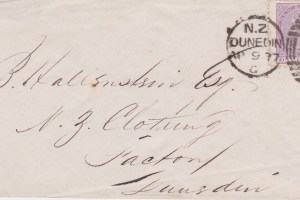 N.Z
DUNEDIN
9 77
C
B. Hallenstein Esq.
N. Z. Clothing
Factory
Dunedin